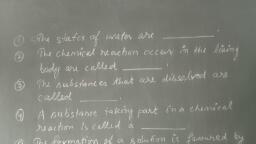 ① The states of water are ________.
② The chemical reaction occur in the living
body are called ______.
③ The substances that are dissolved are
called ______.
④ A substance taking part in a chemical
reaction is called a ________
The formation of a solution is favoured by